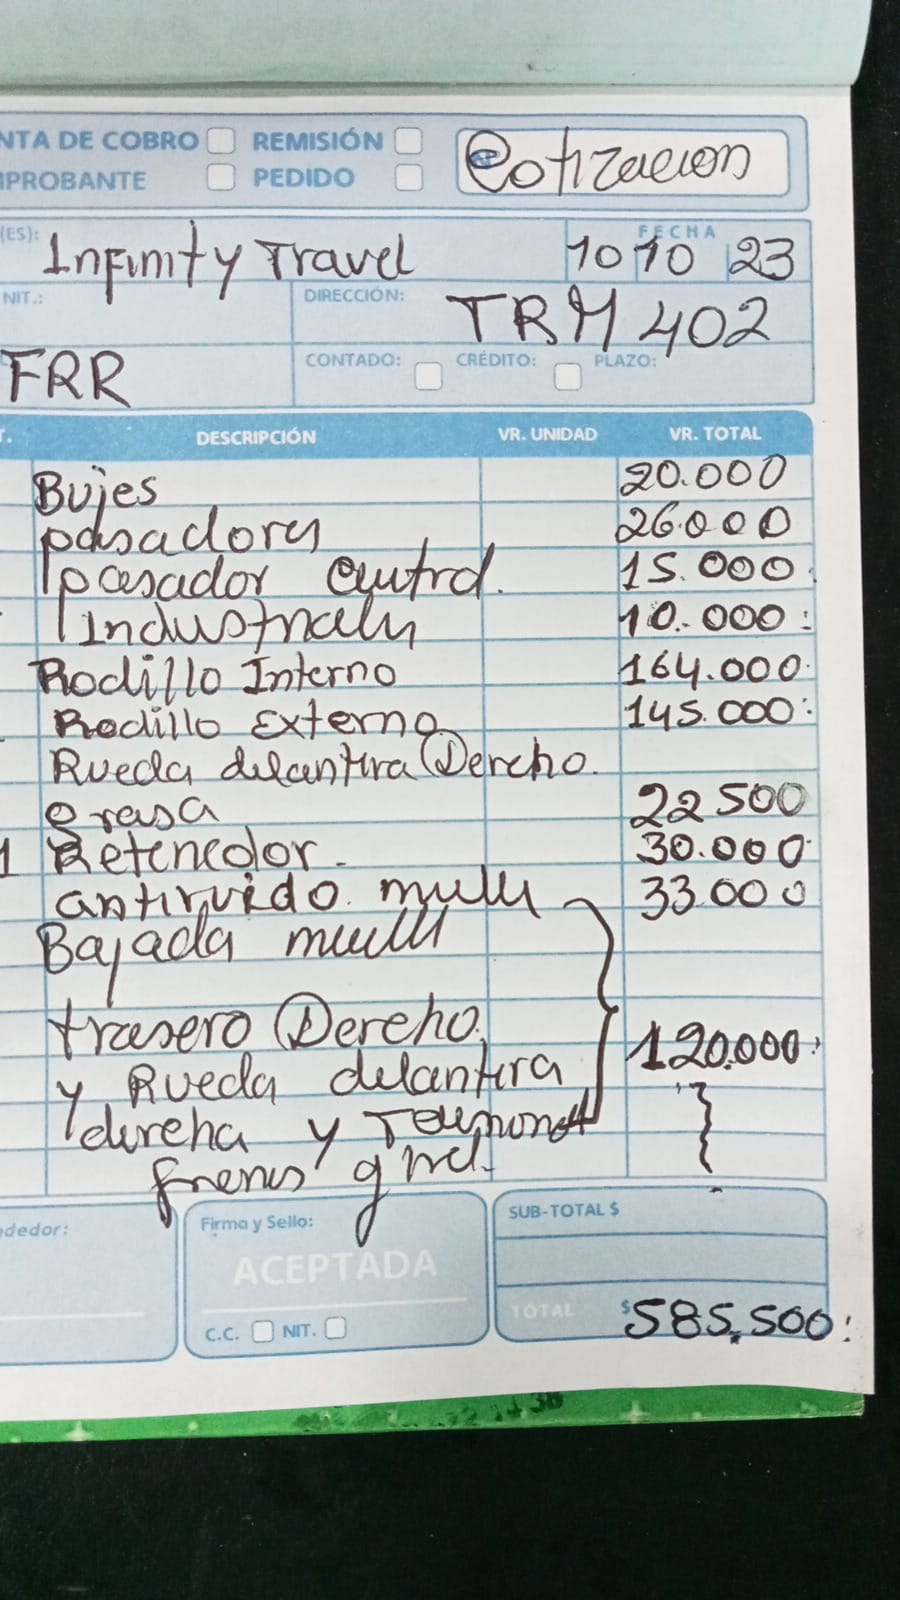 NTA DE COBRO REMISIÓN Cotizacion
MPROBANTE PEDIDO
(ES): Infinity Travel FECHA 10 10 23
NIT.: DIRECCIÓN: TRM 402
FRR CONTADO: CRÉDITO: PLAZO:
T. DESCRIPCIÓN VR. UNIDAD VR. TOTAL
Bujes 20.000
pasadores 26.000
pasador central. 15.000
Industriales 10.000
Rodillo Interno 164.000
Rodillo Externo 145.000
Rueda delantera Derecho.
grasa 22 500
1 Retenedor. 30.000
antiruido muelle 33.000
Bajada muelle
trasero Derecho.
y Rueda delantera 120.000
derecha y
frenos gnel.
ndedor: Firma y Sello: SUB-TOTAL $
ACEPTADA
TOTAL $585.500
C.C. NIT.